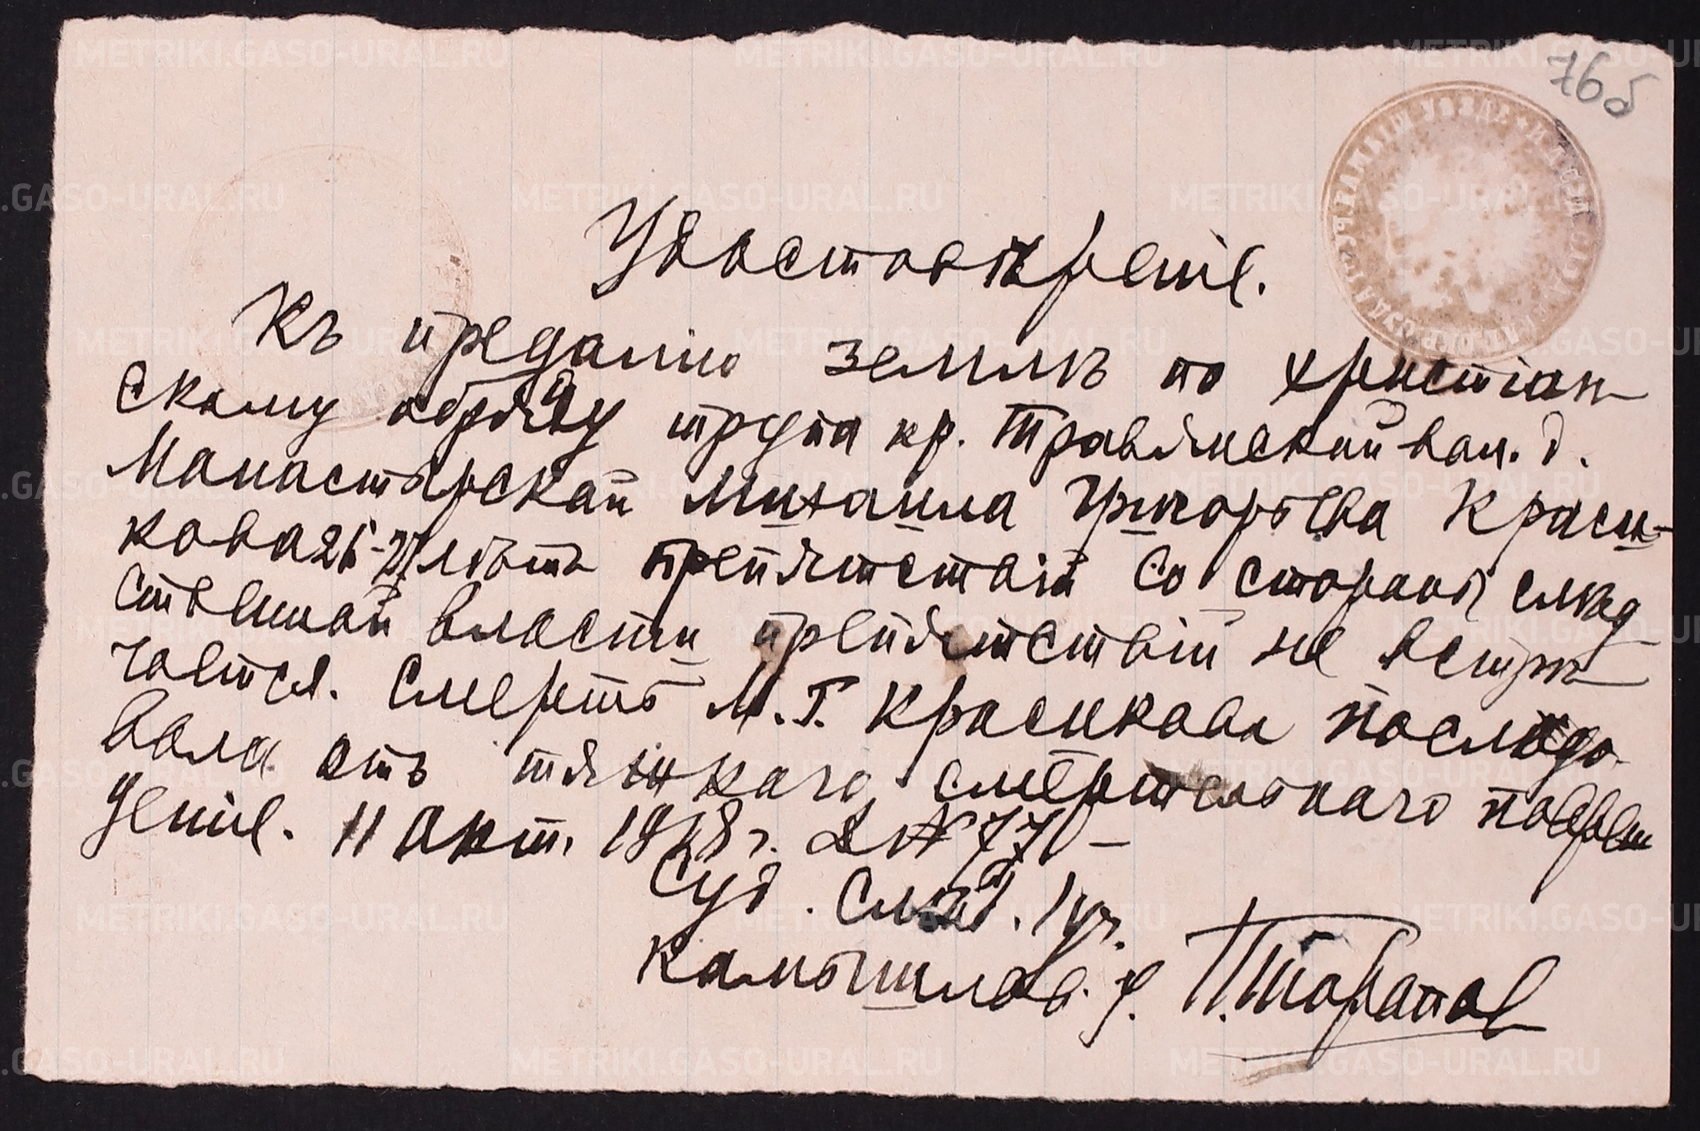 76б
Удостовѣренiе.
Къ преданiю землѣ по христiан-
скому обряду трупа кр. Травянской вол. д.
Монастырской Михаила Григорьева Краси-
кова 26-27 лѣтъ препятствiй со стороны слѣд
ственной власти препятствiй не встрѣ-
чается. Смерть М. Г. Красикова послѣдо-
вала отъ тяжкаго смертельнаго повреж
денiе. 11 Окт. 1918 г. № 770 –
Суд. Слѣд. 1 уч.
Камышлов. у. П. Торапов
METRIKI.GASO-URAL.RU